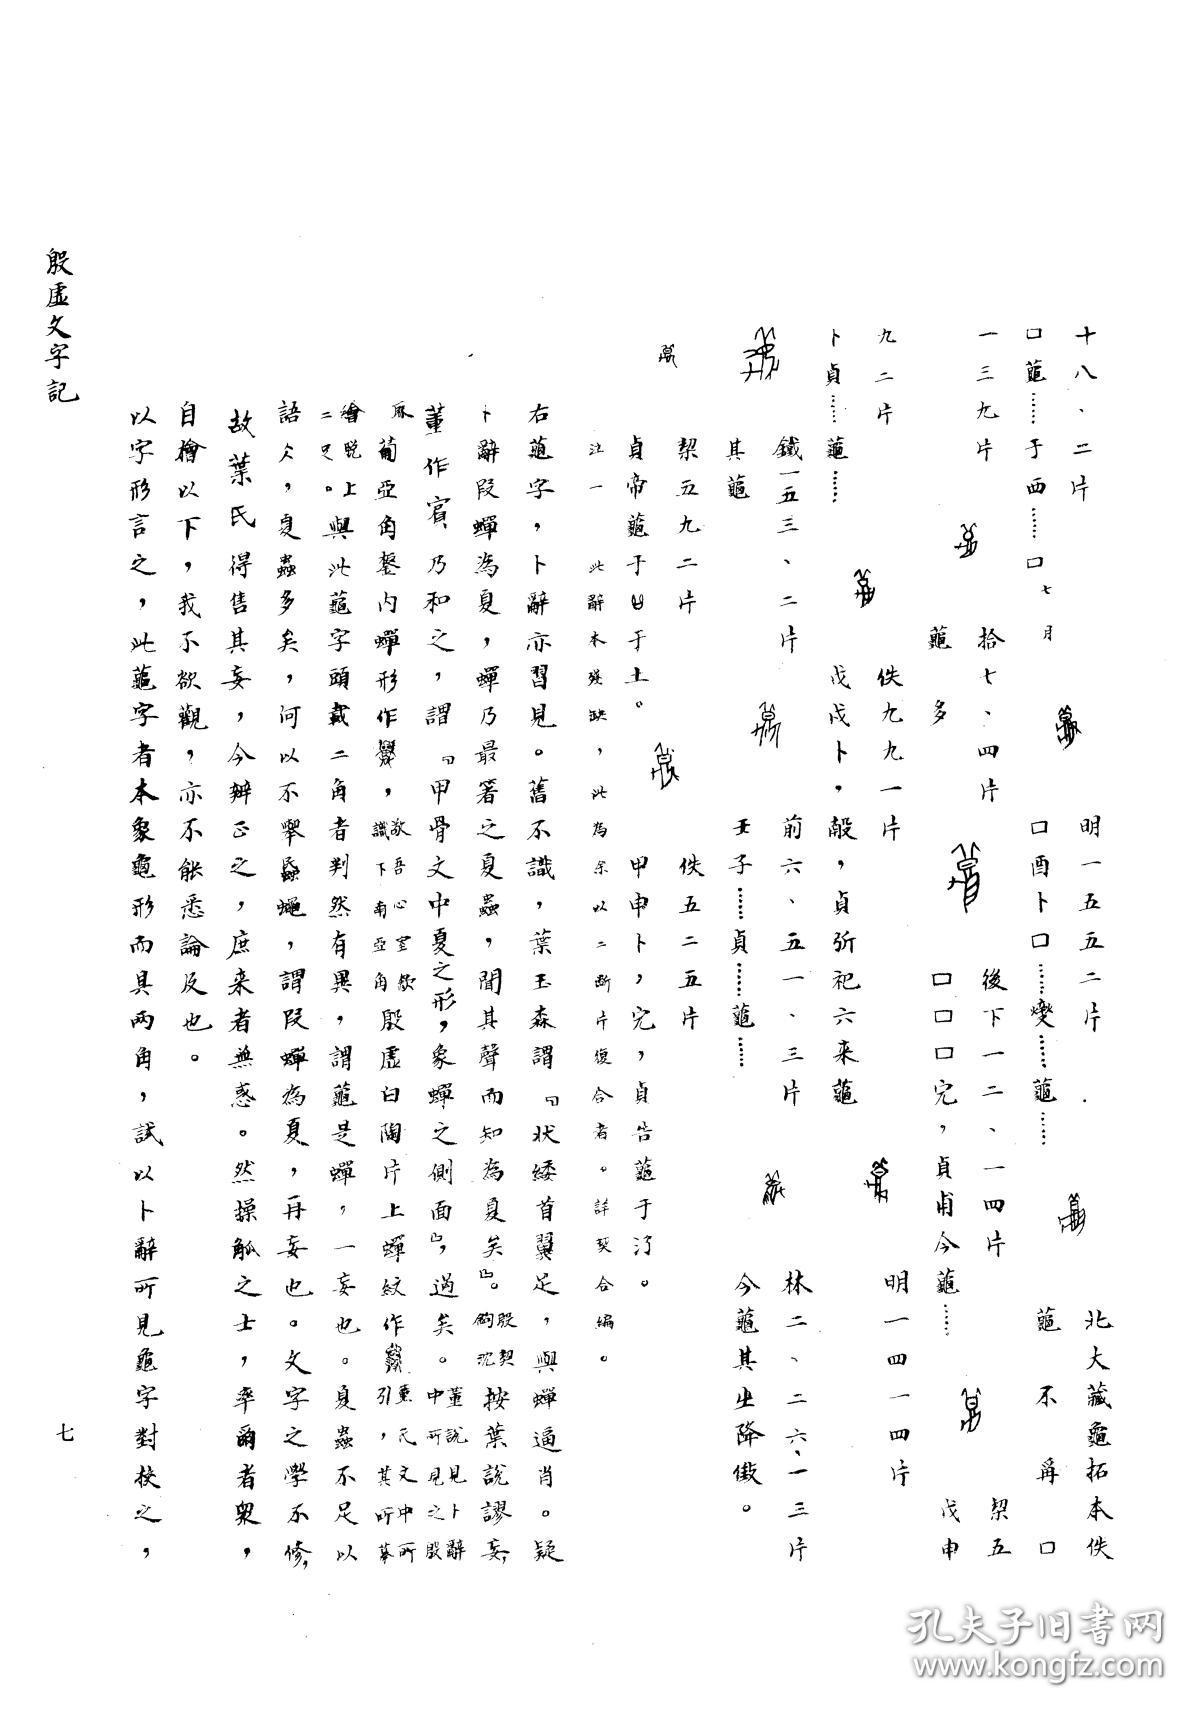 十八、二片 明一五五二片 北大藏龜拓本佚
口𪚰……于西……口七月 口酉卜口……燮……𪚰…… 𪚰不再口
一三九片 拾七、四片 後下一二、一四片 契五
𪚰多 口口口完，貞甫今𪚰…… 戊申
九二片 佚九九一片 明一四一四片
卜貞……𪚰…… 戊戌卜，㱿，貞祀六来𪚰
鐵一五三、二片 前六、五一、三片 林二、二六、一三片
其𪚰 壬子……貞……𪚰…… 今𪚰其㞢降
契五九二片 佚五二五片
貞帝𪚰于㞢于土。 甲申卜，完，貞告𪚰于河。
注一 此辭本殘缺，此為余以二斷片復合者。詳契合編。
右𪚰字，卜辭亦習見。舊不識，葉玉森謂『狀緌首翼足，與蟬逼肖。疑
卜辭叚蟬為夏，蟬乃最著之夏蟲，聞其聲而知為夏矣』。殷契鉤沈按葉說謬妄，
董作賓乃和之，謂『甲骨文中夏之形，象蟬之側面』，過矣。董說見卜辭中所見之殷
葡亞角鋬内蟬形作，殷虛白陶片上蟬紋作
上與此𪚰字頭戴二角者判然有異，謂𪚰是蟬，一妄也。夏蟲不足以
語夂，夏蟲多矣，何以不舉蠅，謂叚蟬為夏，再妄也。文字之學不修，
故葉氏得售其妄，今辨正之，庶来者無惑。然操觚之士，率爾者衆，
自檜以下，我不欲觀，亦不能悉論及也。
以字形言之，此𪚰字者本象龜形而具兩角，試以卜辭所見龜字對校之，
殷虛文字記
七
孔夫子旧书网
www.kongfz.com